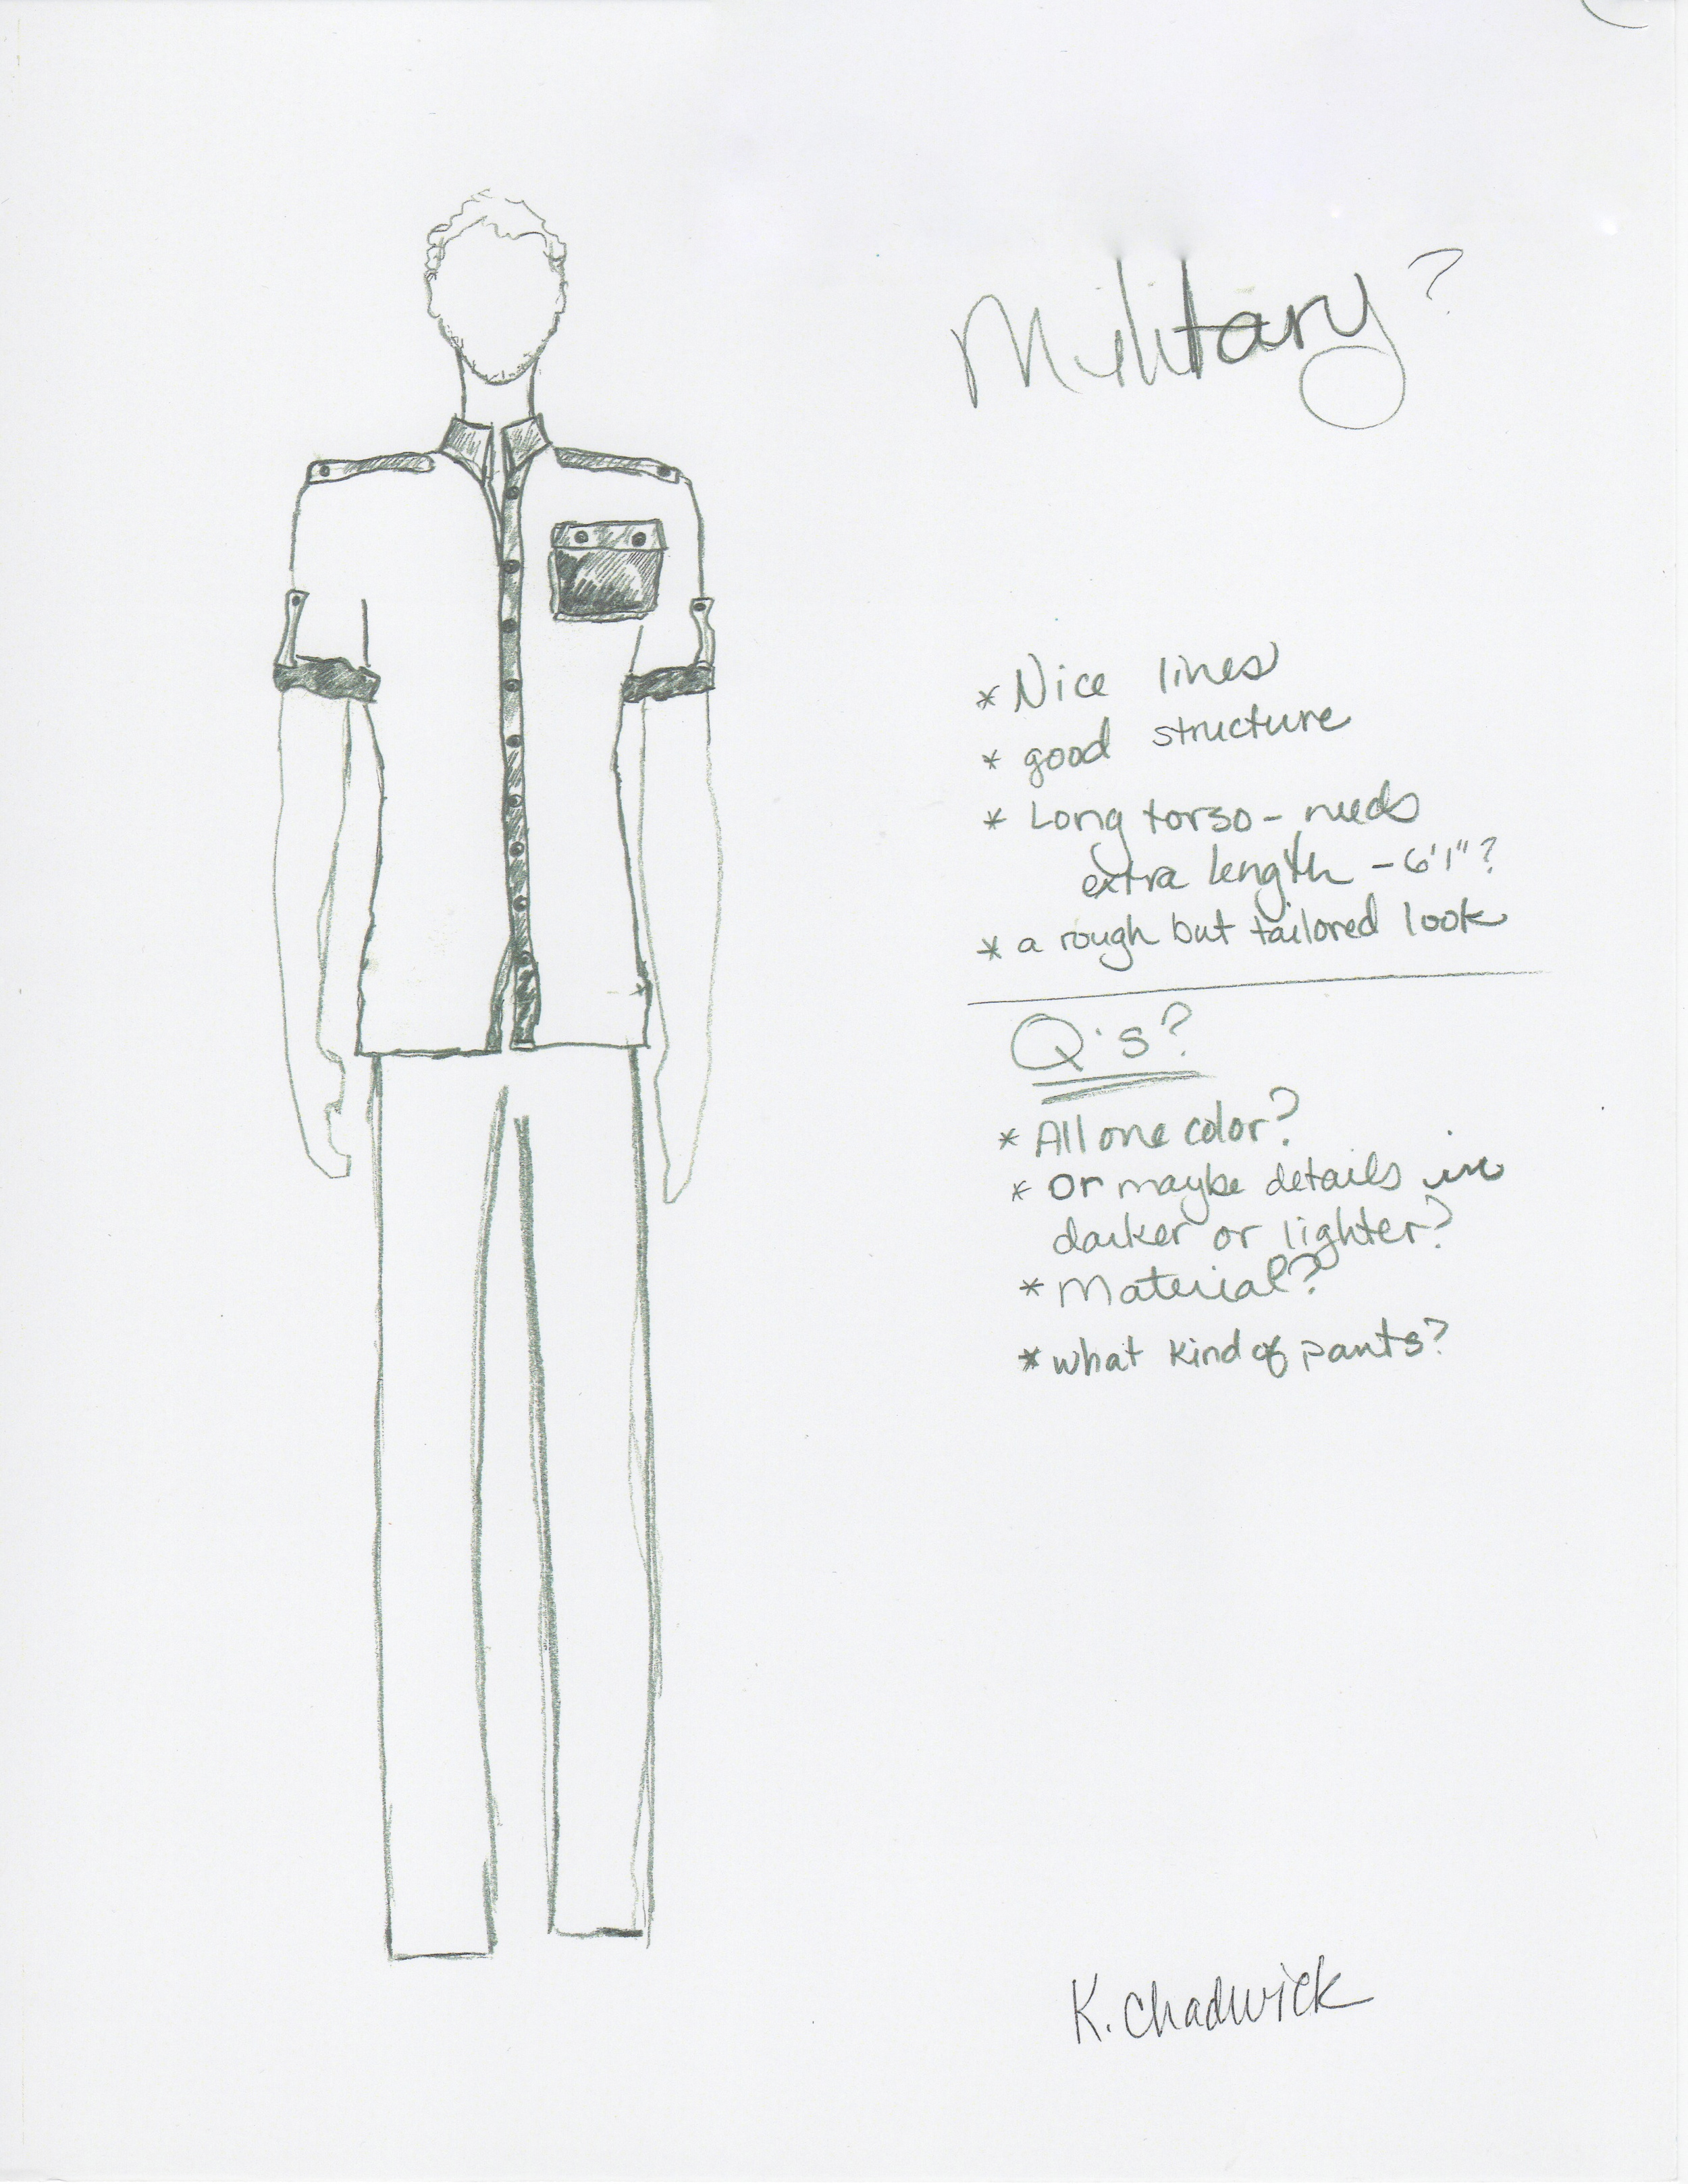 Military?
* Nice lines
* good structure
* Long torso - needs
extra length - 6'1"?
* a rough but tailored look
Q's?
* All one color?
* Or maybe details in
darker or lighter?
* Material?
* what kind of pants?
K. Chadwick